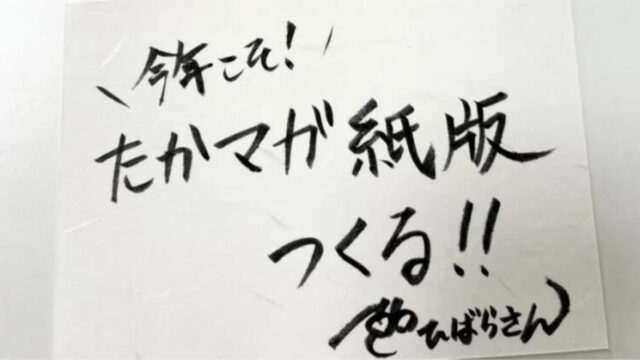 今年こそ！
たかマガ紙版
つくる!!
ひばらさん